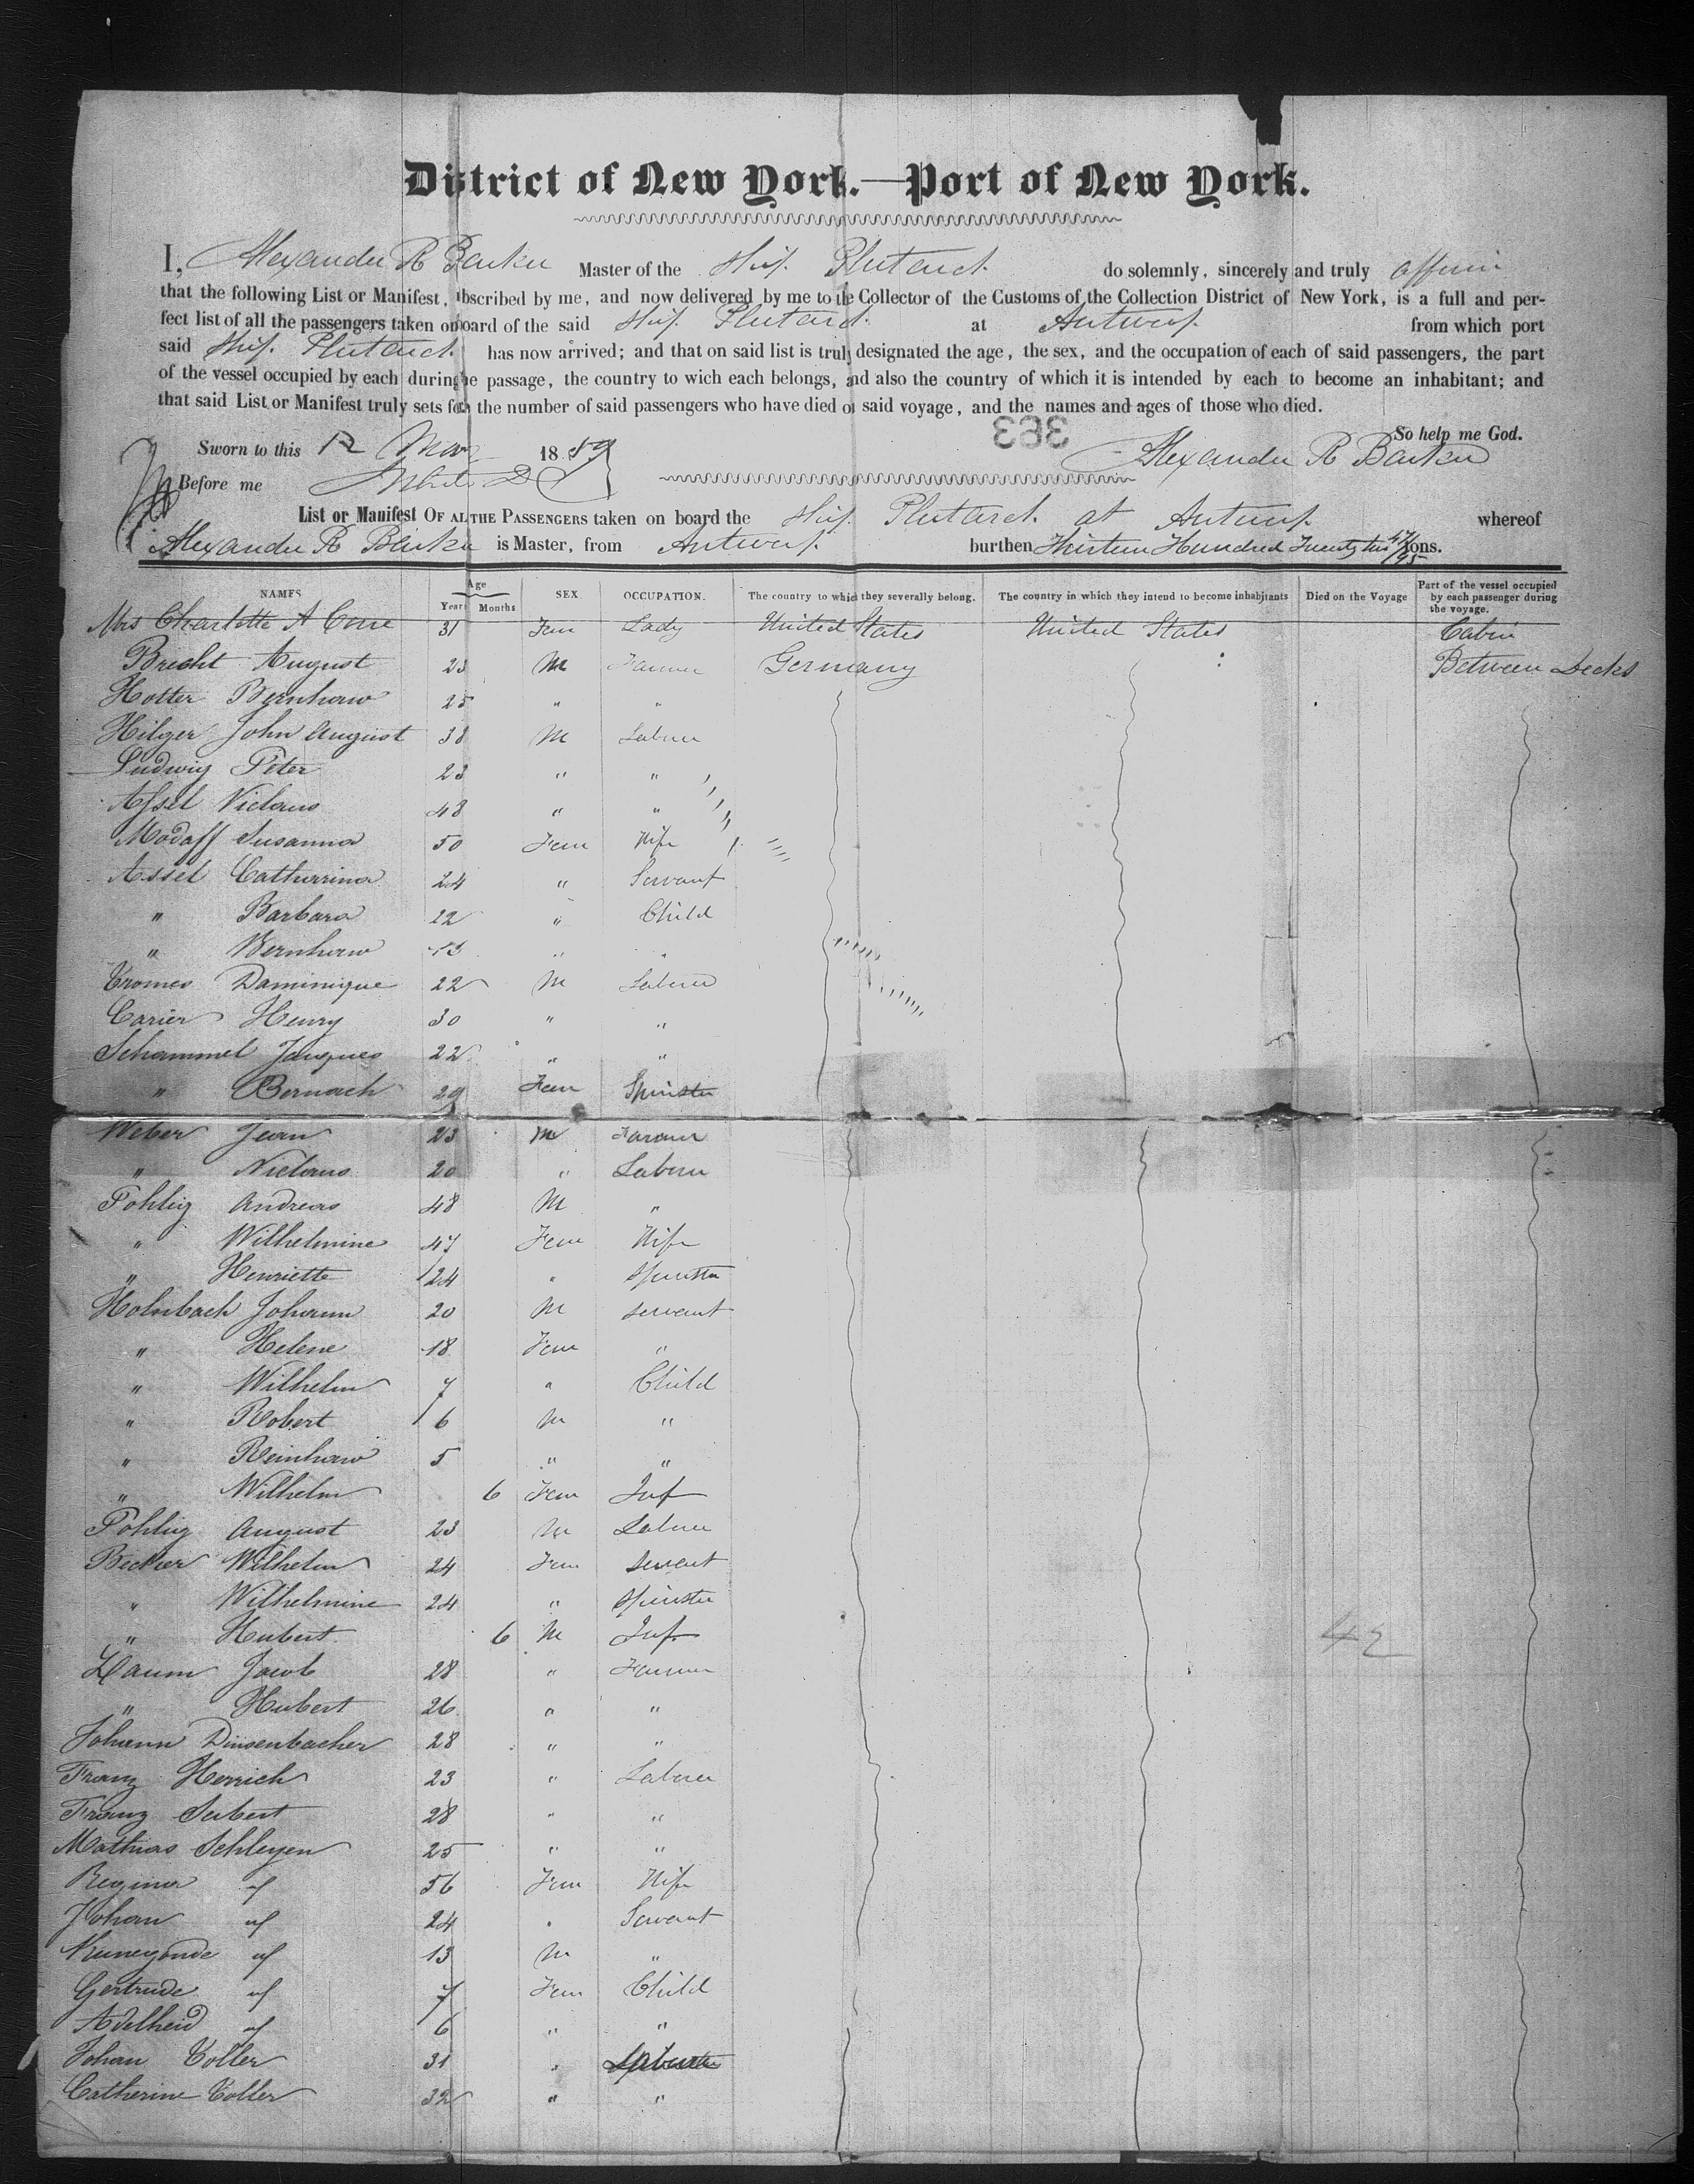 District of New York.—Port of New York.
I, Alexander R Barker Master of the Ship Plutarch do solemnly, sincerely and truly affirm
that the following List or Manifest, ubscribed by me, and now delivered by me to the Collector of the Customs of the Collection District of New York, is a full and per-
fect list of all the passengers taken onboard of the said Ship Plutarch at Antwerp from which port
said Ship Plutarch has now arrived; and that on said list is truly designated the age, the sex, and the occupation of each of said passengers, the part
of the vessel occupied by each during he passage, the country to wich each belongs, and also the country of which it is intended by each to become an inhabitant; and
that said List or Manifest truly sets forth the number of said passengers who have died on said voyage, and the names and ages of those who died.
383
So help me God.
Sworn to this 12 18 59 Alexander R Barker
Before me
List or Manifest OF AL THE PASSENGERS taken on board the Ship Plutarch at Antwerp whereof
Alexander R Barker is Master, from Antwerp burthen Thirteen Hundred Twenty two 47/95 tons.
NAMES Age Years Months SEX OCCUPATION. The country to which they severally belong. The country in which they intend to become inhabitants Died on the Voyage Part of the vessel occupied by each passenger during the voyage.
Mrs Charlotte A 31 Fem Lady United States United States Cabin
Brecht August 23 M Farmer Germany Between Decks
Hotter Bernhard 25 " "
Hilger John August 38 M Laborer
Ludwig Peter 23 " "
Assel Niclaus 48 " "
Modaff Susanna 50 Fem Wife
Assel Catharina 24 " Servant
" Barbara 22 " Child
" Bernhard 13 " "
Cromes Daminique 22 M Laborer
Carier Henry 30 " "
Schammel Jaques 22 " "
" Bernach 29 Fem Spinster
Weber Jean 23 M Farmer
" Niclaus 20 " Laborer
Pohlig Andreas 48 M "
" Wilhelmine 47 Fem Wife
" Henriette 24 " Spinster
Holnbach Johann 20 M servant
" Helene 18 Fem "
" Wilhelm 7 " Child
" Robert 6 M "
" Reinhard 5 " "
" Wilhelm 6 Fem Inf
Pohlig August 23 M Laborer
Becker Wilhelm 24 Fem Servant
" Wilhelmine 24 " Spinster
" Hubert 6 M Inf 42
Daum Jacob 28 " Farmer
" Hubert 26 " "
Johann Dinsenbacher 28 " "
Franz Herrich 23 " Laborer
Franz Seibert 28 " "
Mathias Schleyen 25 " "
Regina " 56 Fem Wife
Johan " 24 " Servant
Kunegonde " 13 M "
Gertrude " 7 Fem Child
Adelheid " 6 " "
Johan Coller 31 "
Catherine Coller 32 " "